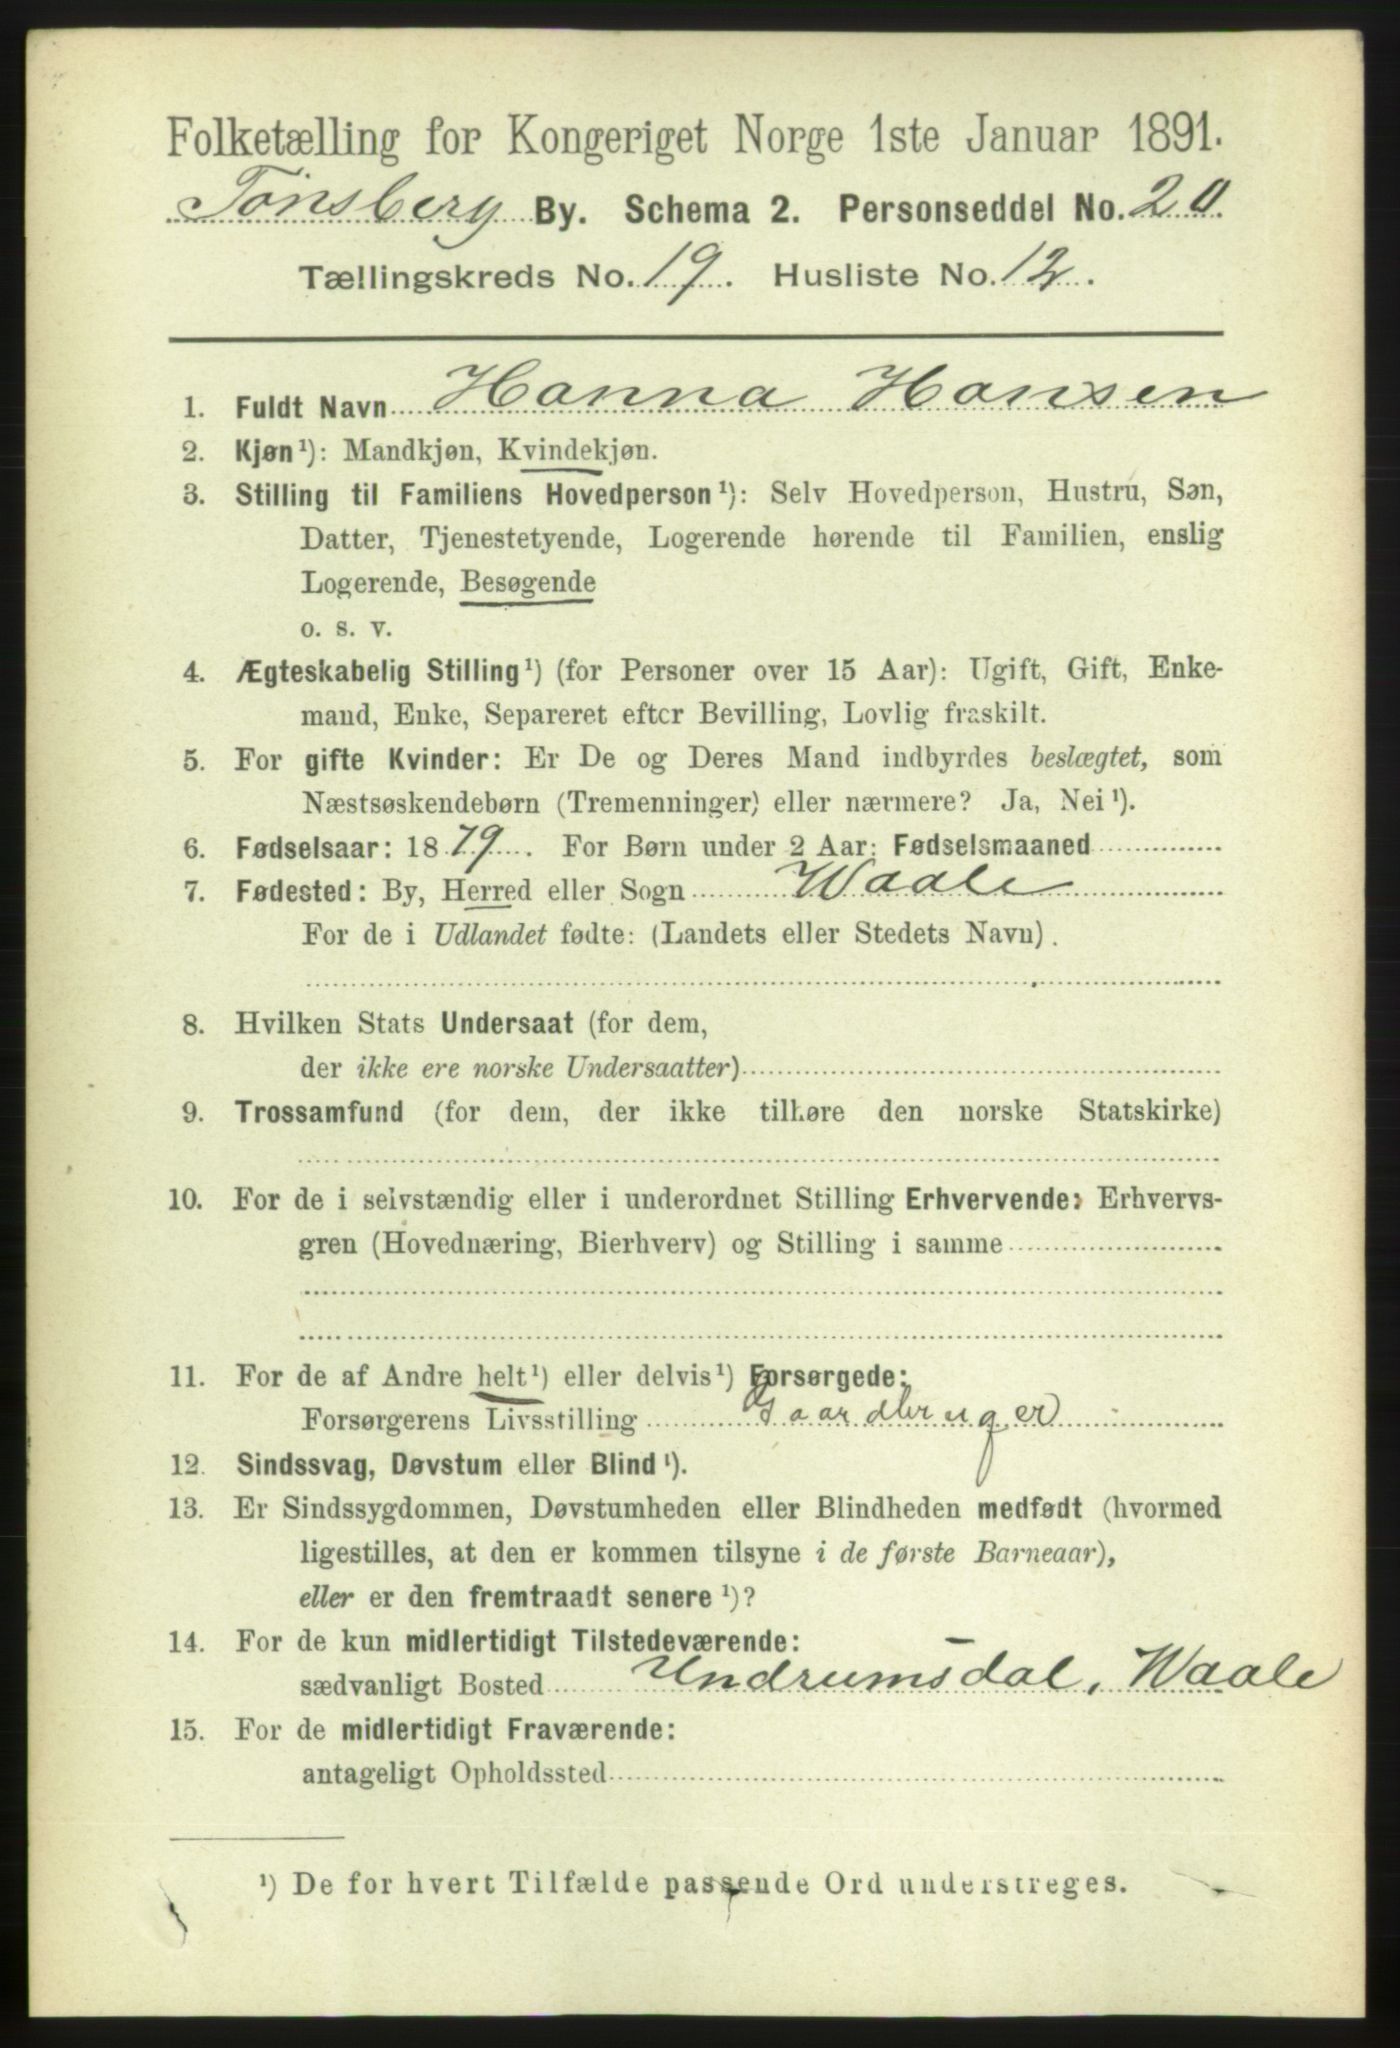 Folketælling for Kongeriget Norge 1ste Januar 1891.
Tønsberg By. Schema 2. Personseddel No. 20
Tællingskreds No. 19. Husliste No. 12.
1. Fuldt Navn Hanna Hansen
2. Kjøn¹): Mandkjøn, Kvindekjøn.
3. Stilling til Familiens Hovedperson¹): Selv Hovedperson, Hustru, Søn,
Datter, Tjenestetyende, Logerende hørende til Familien, enslig
Logerende, Besøgende
o. s. v.
4. Ægteskabelig Stilling¹) (for Personer over 15 Aar): Ugift, Gift, Enke-
mand, Enke, Separeret efter Bevilling, Lovlig fraskilt.
5. For gifte Kvinder: Er De og Deres Mand indbyrdes beslægtet, som
Næstsøskendebørn (Tremenninger) eller nærmere? Ja, Nei¹).
6. Fødselsaar: 1879. For Børn under 2 Aar: Fødselsmaaned
7. Fødested: By, Herred eller Sogn Waale
For de i Udlandet fødte: (Landets eller Stedets Navn).
8. Hvilken Stats Undersaat (for dem,
der ikke ere norske Undersaatter)
9. Trossamfund (for dem, der ikke tilhøre den norske Statskirke)
10. For de i selvstændig eller i underordnet Stilling Erhvervende: Erhvervs-
gren (Hovednæring, Bierhverv) og Stilling i samme
11. For de af Andre helt¹) eller delvis¹) Forsørgede:
Forsørgerens Livsstilling Gaardbruger
12. Sindssvag, Døvstum eller Blind¹).
13. Er Sindssygdommen, Døvstumheden eller Blindheden medfødt (hvormed
ligestilles, at den er kommen tilsyne i de første Barneaar),
eller er den fremtraadt senere¹)?
14. For de kun midlertidigt Tilstedeværende:
sædvanligt Bosted Undrumsdal, Waale
15. For de midlertidigt Fraværende:
antageligt Opholdssted
¹) De for hvert Tilfælde passende Ord understreges.